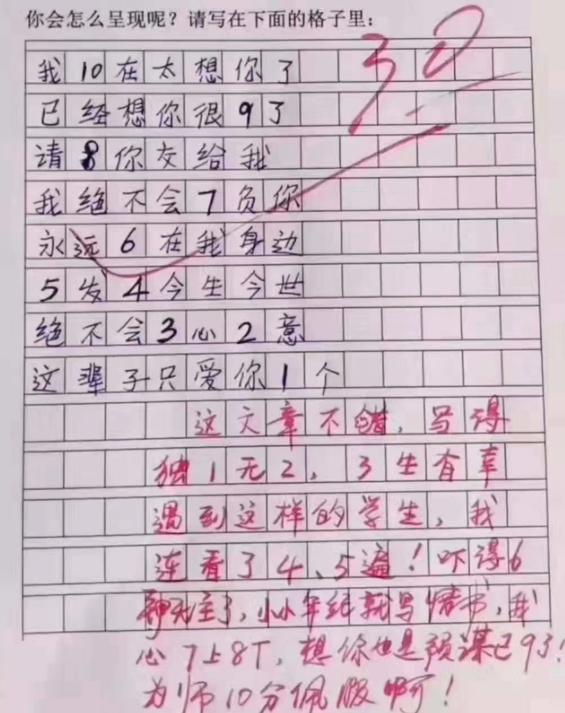 你会怎么呈现呢？请写在下面的格子里：
30
我10在太想你了
已经想你很93
请8你交给我
我绝不会7负你
永远6在我身边
5发4今生今世
绝不会3心2意
这辈子只爱你1个
这文章不错，写得
独1无2，3生有幸
遇到这样的学生，我
连看了4、5遍！吓得6
神无主了，小小年纪就写情书，我
心7上8下，想你也是预谋已93！
为师10分佩服啊！